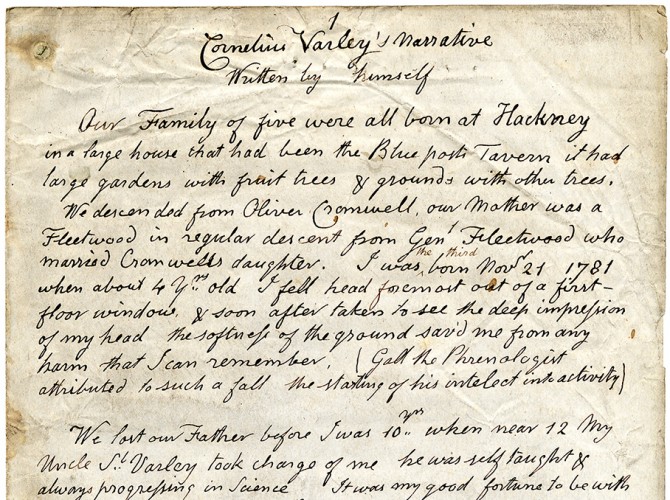 1
Cornelius Varley's Narrative
Written by himself
Our Family of five were all born at Hackney
in a large house that had been the Blue posts Tavern it had
large gardens with fruit trees & grounds with other trees.
We descended from Oliver Cromwell, our Mother was a
Fleetwood in regular descent from Genl Fleetwood who
married Cromwells daughter. I was the third born Novr 21 1781
when about 4 Yrs old I fell head foremost out of a first-
floor window & soon after taken to see the deep impression
of my head the softness of the ground sav'd me from any
harm that I can remember. (Gall the Phrenologist
attributed to such a fall the starting of his intelect into activity)
We lost our Father before I was 10 yrs when near 12 My
Uncle Sl Varley took charge of me he was self taught &
always progressing in Science It was my good fortune to be with